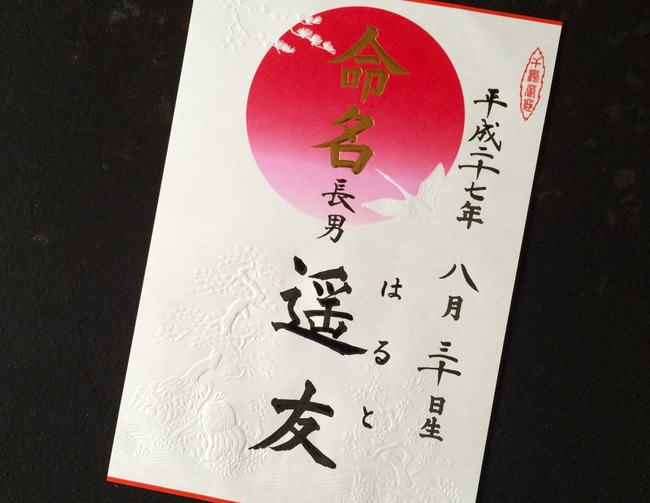 平成二十七年
八月三十日生
命名
長男
遥友
はると